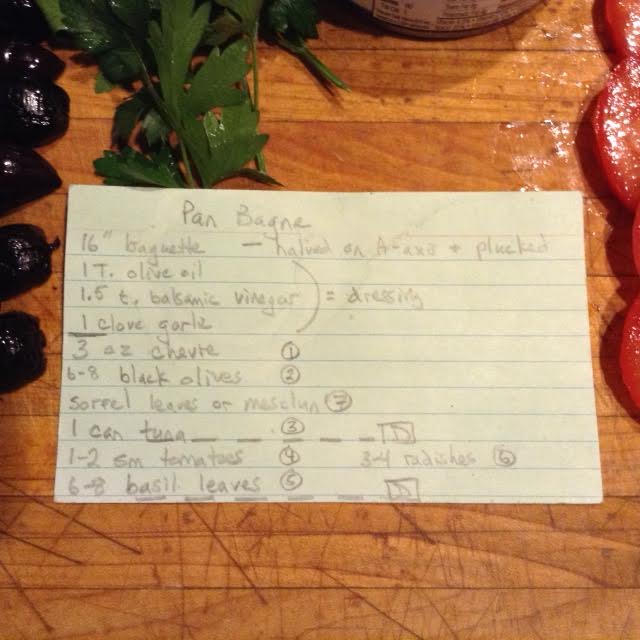 Pan Bagne
16" baguette — halved on A-axis + plucked
1 T. olive oil
1.5 t. balsamic vinegar = dressing
1 clove garlic
3 oz chevre ①
6-8 black olives ②
sorrel leaves or mesclun ⑦
1 can tuna ③
1-2 sm tomatoes ④ 3-4 radishes ⑥
6-8 basil leaves ⑤